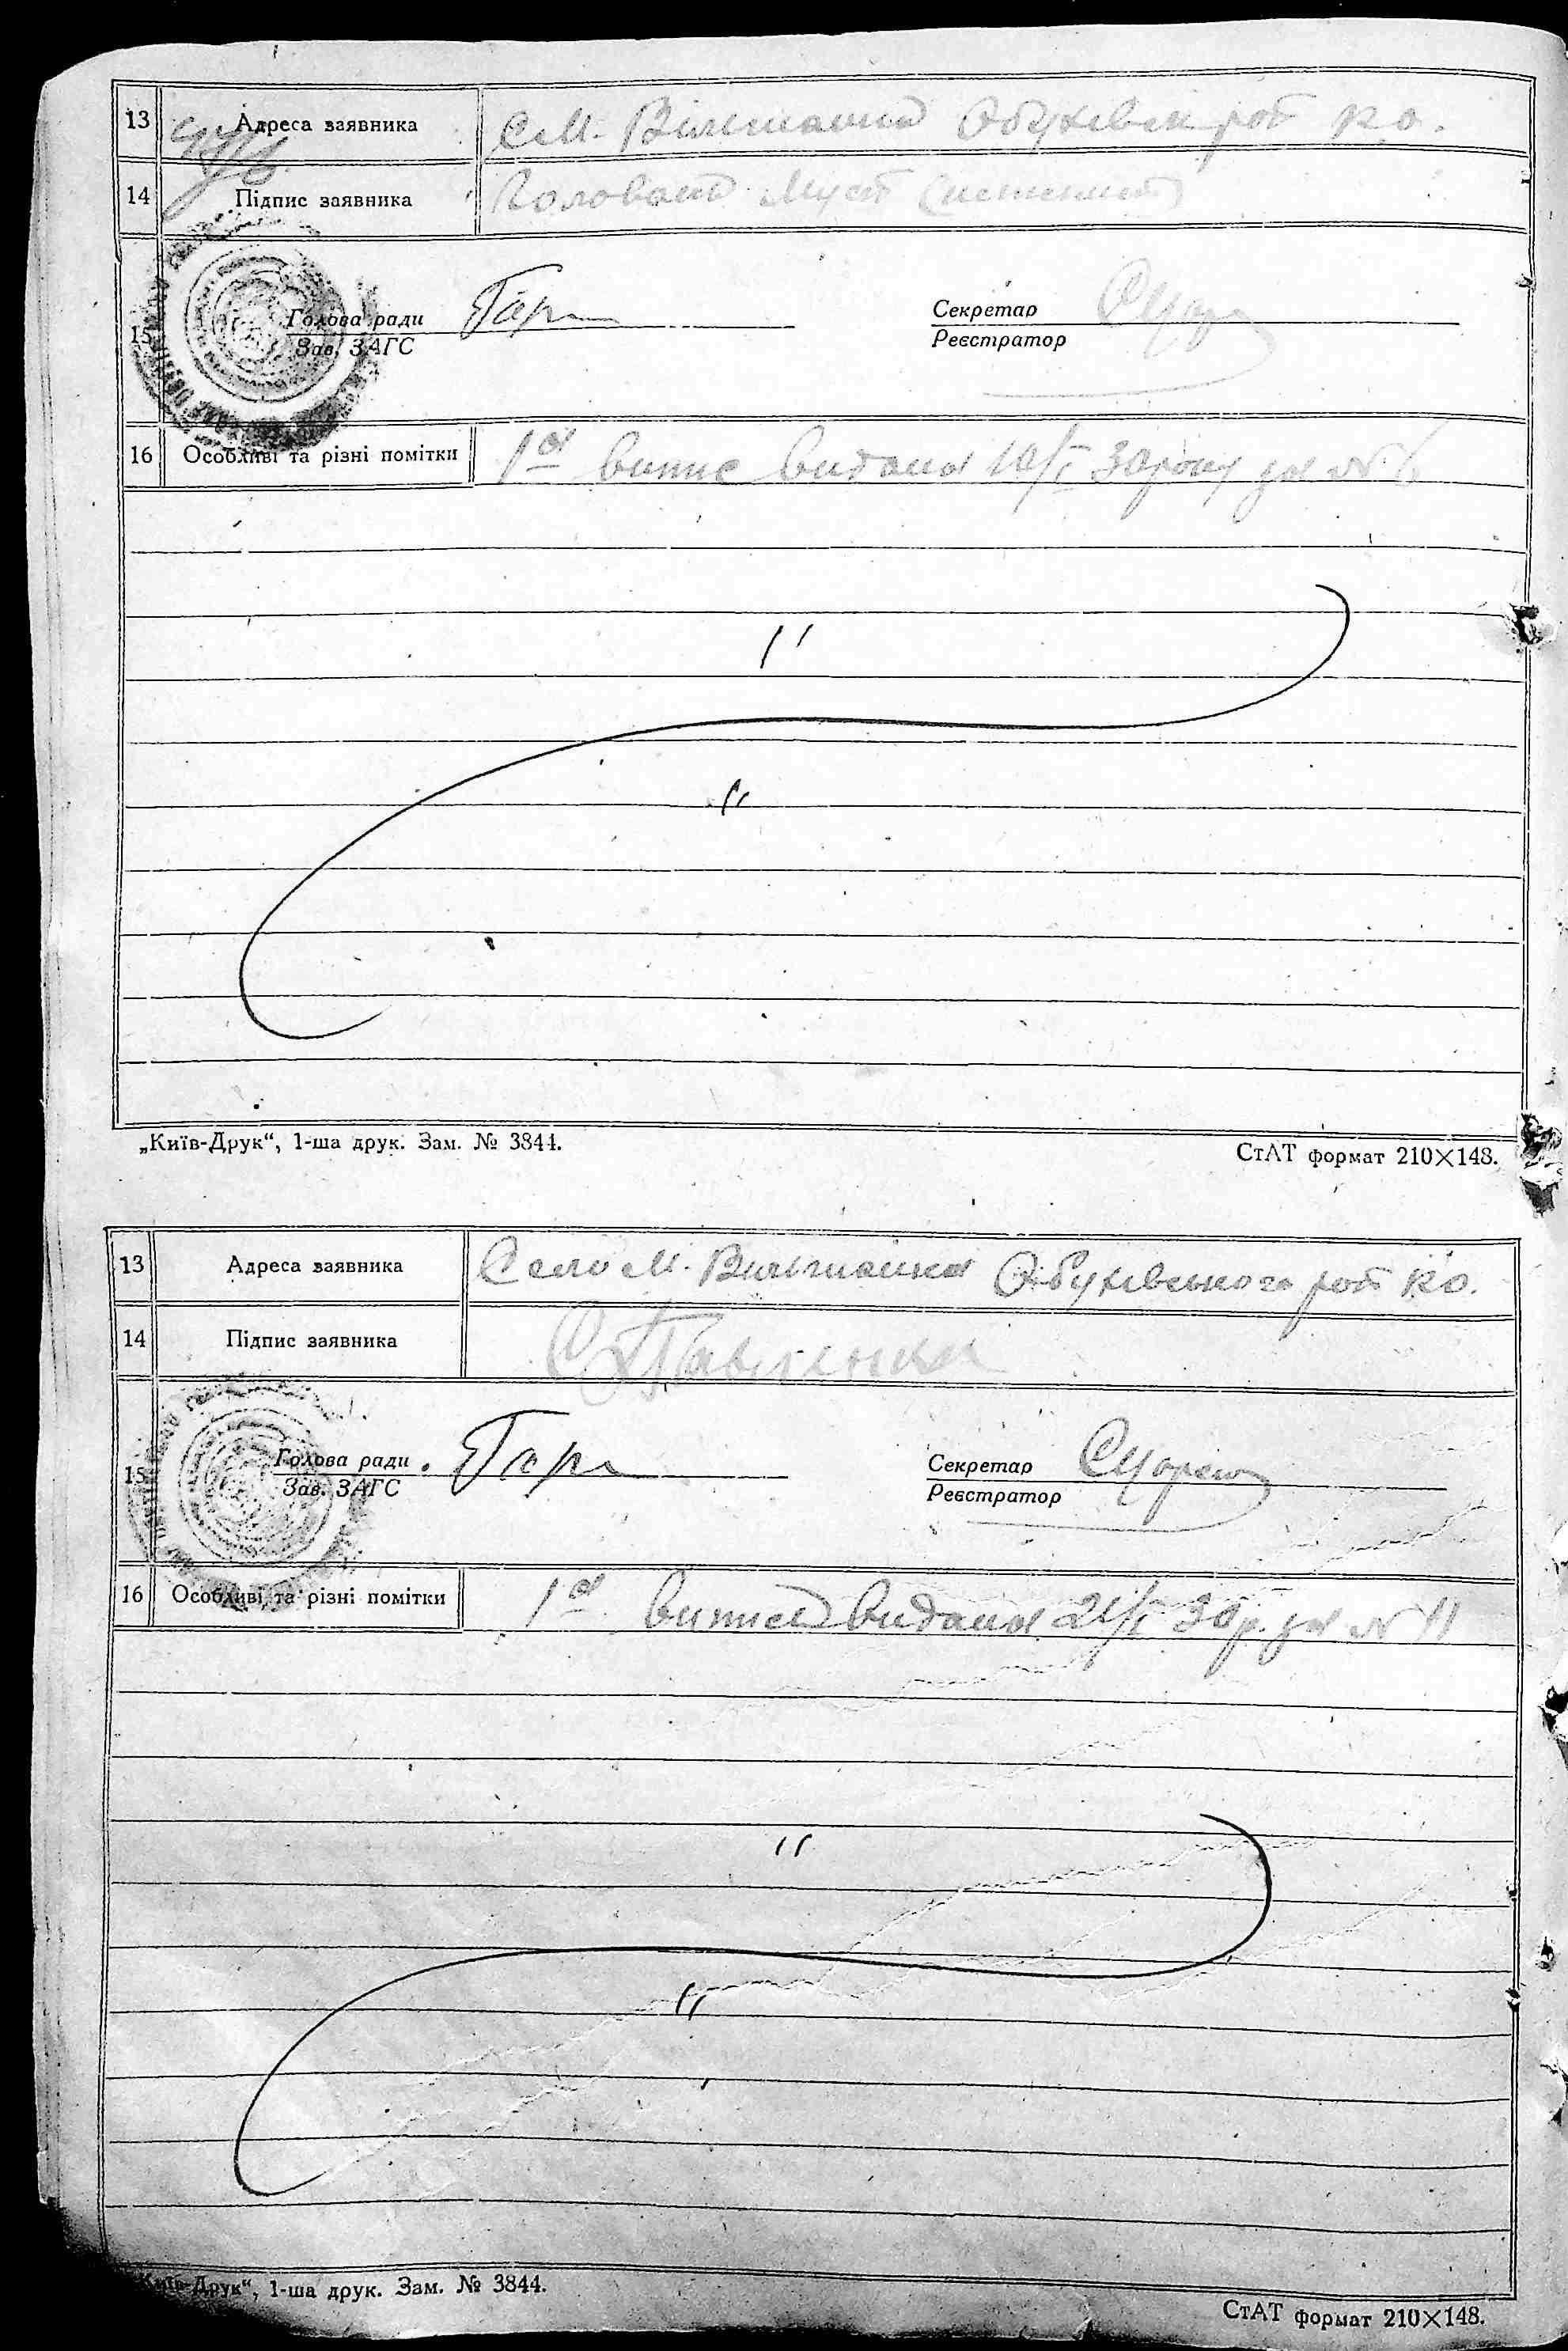 13 Адреса заявника С.М. Вільшанка Обухівськ рай К.о.
14 Підпис заявника
15 Голова ради Гар Секретар
Зав. ЗАГС Реєстратор
16 Особливі та різні помітки 1а випис видана 10/I 30 року за № 6
"
"
„Київ-Друк“, 1-ша друк. Зам. № 3844. СтАТ формат 210×148.
13 Адреса заявника Село М. Вильшанка Обухівського рай К.о.
14 Підпис заявника Павленко
15 Голова ради Гар Секретар
Зав. ЗАГС Реєстратор
16 Особливі та різні помітки 1а випись видана 21/I 30 р. за № 11
"
"
„Київ-Друк“, 1-ша друк. Зам. № 3844.
СтАТ формат 210×148.